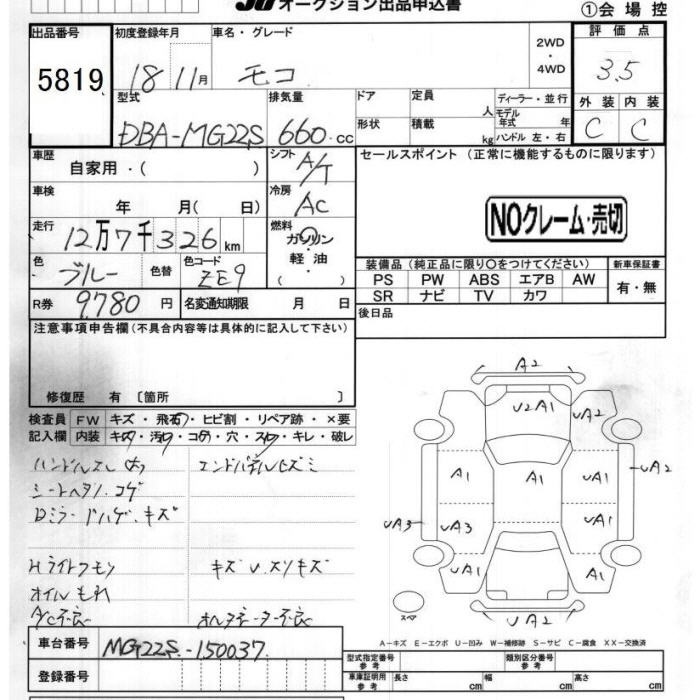 オークション出品申込書
①会場控
出品番号 初度登録年月 車名・グレード 2WD・4WD 評価点
5819 18 11月 モコ 3.5
型式 排気量 ドア 定員 人 ディーラー・並行 外装 内装
DBA-MG22S 660 cc 形状 積載 kg モデル年式 年 ハンドル 左・右 C C
車歴 自家用・( ) シフト A/T セールスポイント (正常に機能するものに限ります)
車検 年 月(日) 冷房 AC
NOクレーム・売切
走行 12万7千326km 燃料 ガソリン・軽油・( )
色 ブルー 色替 色コード ZE9
装備品(純正品に限り○をつけてください) 新車保証書
PS PW ABS エアB AW 有・無
SR ナビ TV カワ
R券 9,780円 名変通知期限 月 日
後日品
注意事項申告欄(不具合内容等は具体的に記入して下さい)
修復歴 有 [箇所 ]
検査員 FW キズ・飛石・ヒビ割・リペア跡・×要
記入欄 内装 キズ・汚れ・コゲ・穴・スレ・キレ・破レ
ハンドルスレ
シートヘタリ、コゲ
Dミラードハゲ、キズ
Hライトクモリ キズ U、スリキズ
オイルもれ
A/C不良
A2
U2A1 UA2
A1 A1 UA1 UA2
UA3 UA3 UA1
UA1 A1
スペア UA2
A-キズ E-エクボ U-凹み W-補修跡 S-サビ C-腐食 XX-交換済
車台番号 MG22S-150037
登録番号
型式指定番号 参考 類別区分番号 参考
車庫証明用 参考 長さ cm 幅 cm 高さ cm